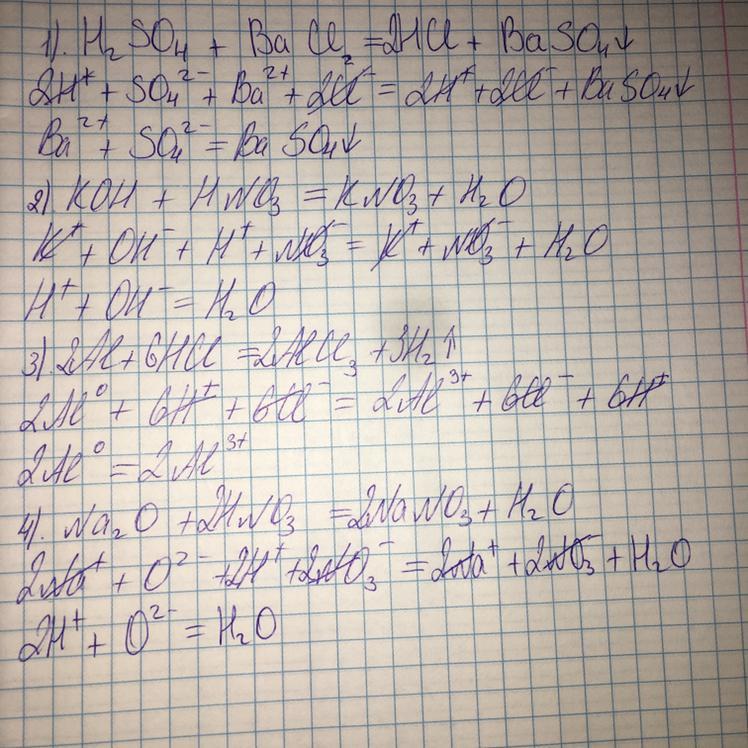 1). H₂SO₄ + BaCl₂ = 2HCl + BaSO₄↓
2H⁺ + SO₄²⁻ + Ba²⁺ + 2Cl⁻ = 2H⁺ + 2Cl⁻ + BaSO₄↓
Ba²⁺ + SO₄²⁻ = BaSO₄↓
2) KOH + HNO₃ = KNO₃ + H₂O
K⁺ + OH⁻ + H⁺ + NO₃⁻ = K⁺ + NO₃⁻ + H₂O
H⁺ + OH⁻ = H₂O
3). 2Al + 6HCl = 2AlCl₃ + 3H₂↑
2Al⁰ + 6H⁺ + 6Cl⁻ = 2Al³⁺ + 6Cl⁻ + 6H⁺
2Al⁰ = 2Al³⁺
4). Na₂O + 2HNO₃ = 2NaNO₃ + H₂O
2Na⁺ + O²⁻ + 2H⁺ + 2NO₃⁻ = 2Na⁺ + 2NO₃⁻ + H₂O
2H⁺ + O²⁻ = H₂O